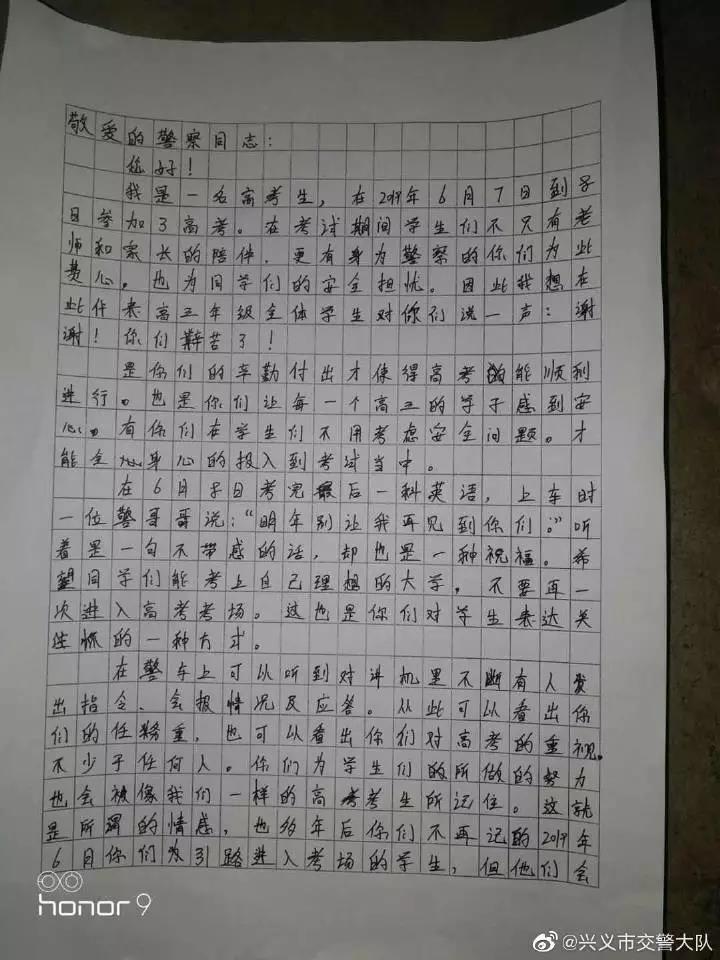 敬爱的警察同志：
您好！
我是一名高考生，在2019年6月7日到8
日参加了高考。在考试期间学生们不只有老
师和家长的陪伴，更有身为警察的你们为此
费心。也为同学们的安全担忧。因此我想在
此代表高三年级全体学生对你们说一声：谢
谢！你们辛苦了！
是你们的辛勤付出才使得高考能顺利
进行。也是你们让每一个高三的学子感到安
心。有你们在学生们不用考虑安全问题。才
能全心身心的投入到考试当中。
在6月8日考完最后一科英语，上车时
一位警哥哥说："明年别让我再见到你们。"听
着是一句不带感的话，却也是一种祝福。希
望同学们能考上自己理想的大学，不要再一
次进入高考考场。这也是你们对学生表达关
怀的一种方式。
在警车上可以听到对讲机里不断有人发
出指令、会报情况及应答。从此可以看出你
们的任务重，也可以看出你们对高考的重视。
不少于任何人。你们为学生们的所做的努力
也会被像我们一样的高考考生所记住。这就
是所谓的情感，也许年后你们不再记的2019年
6月你们为引路进入考场的学生，但他们会
honor 9
@兴义市交警大队